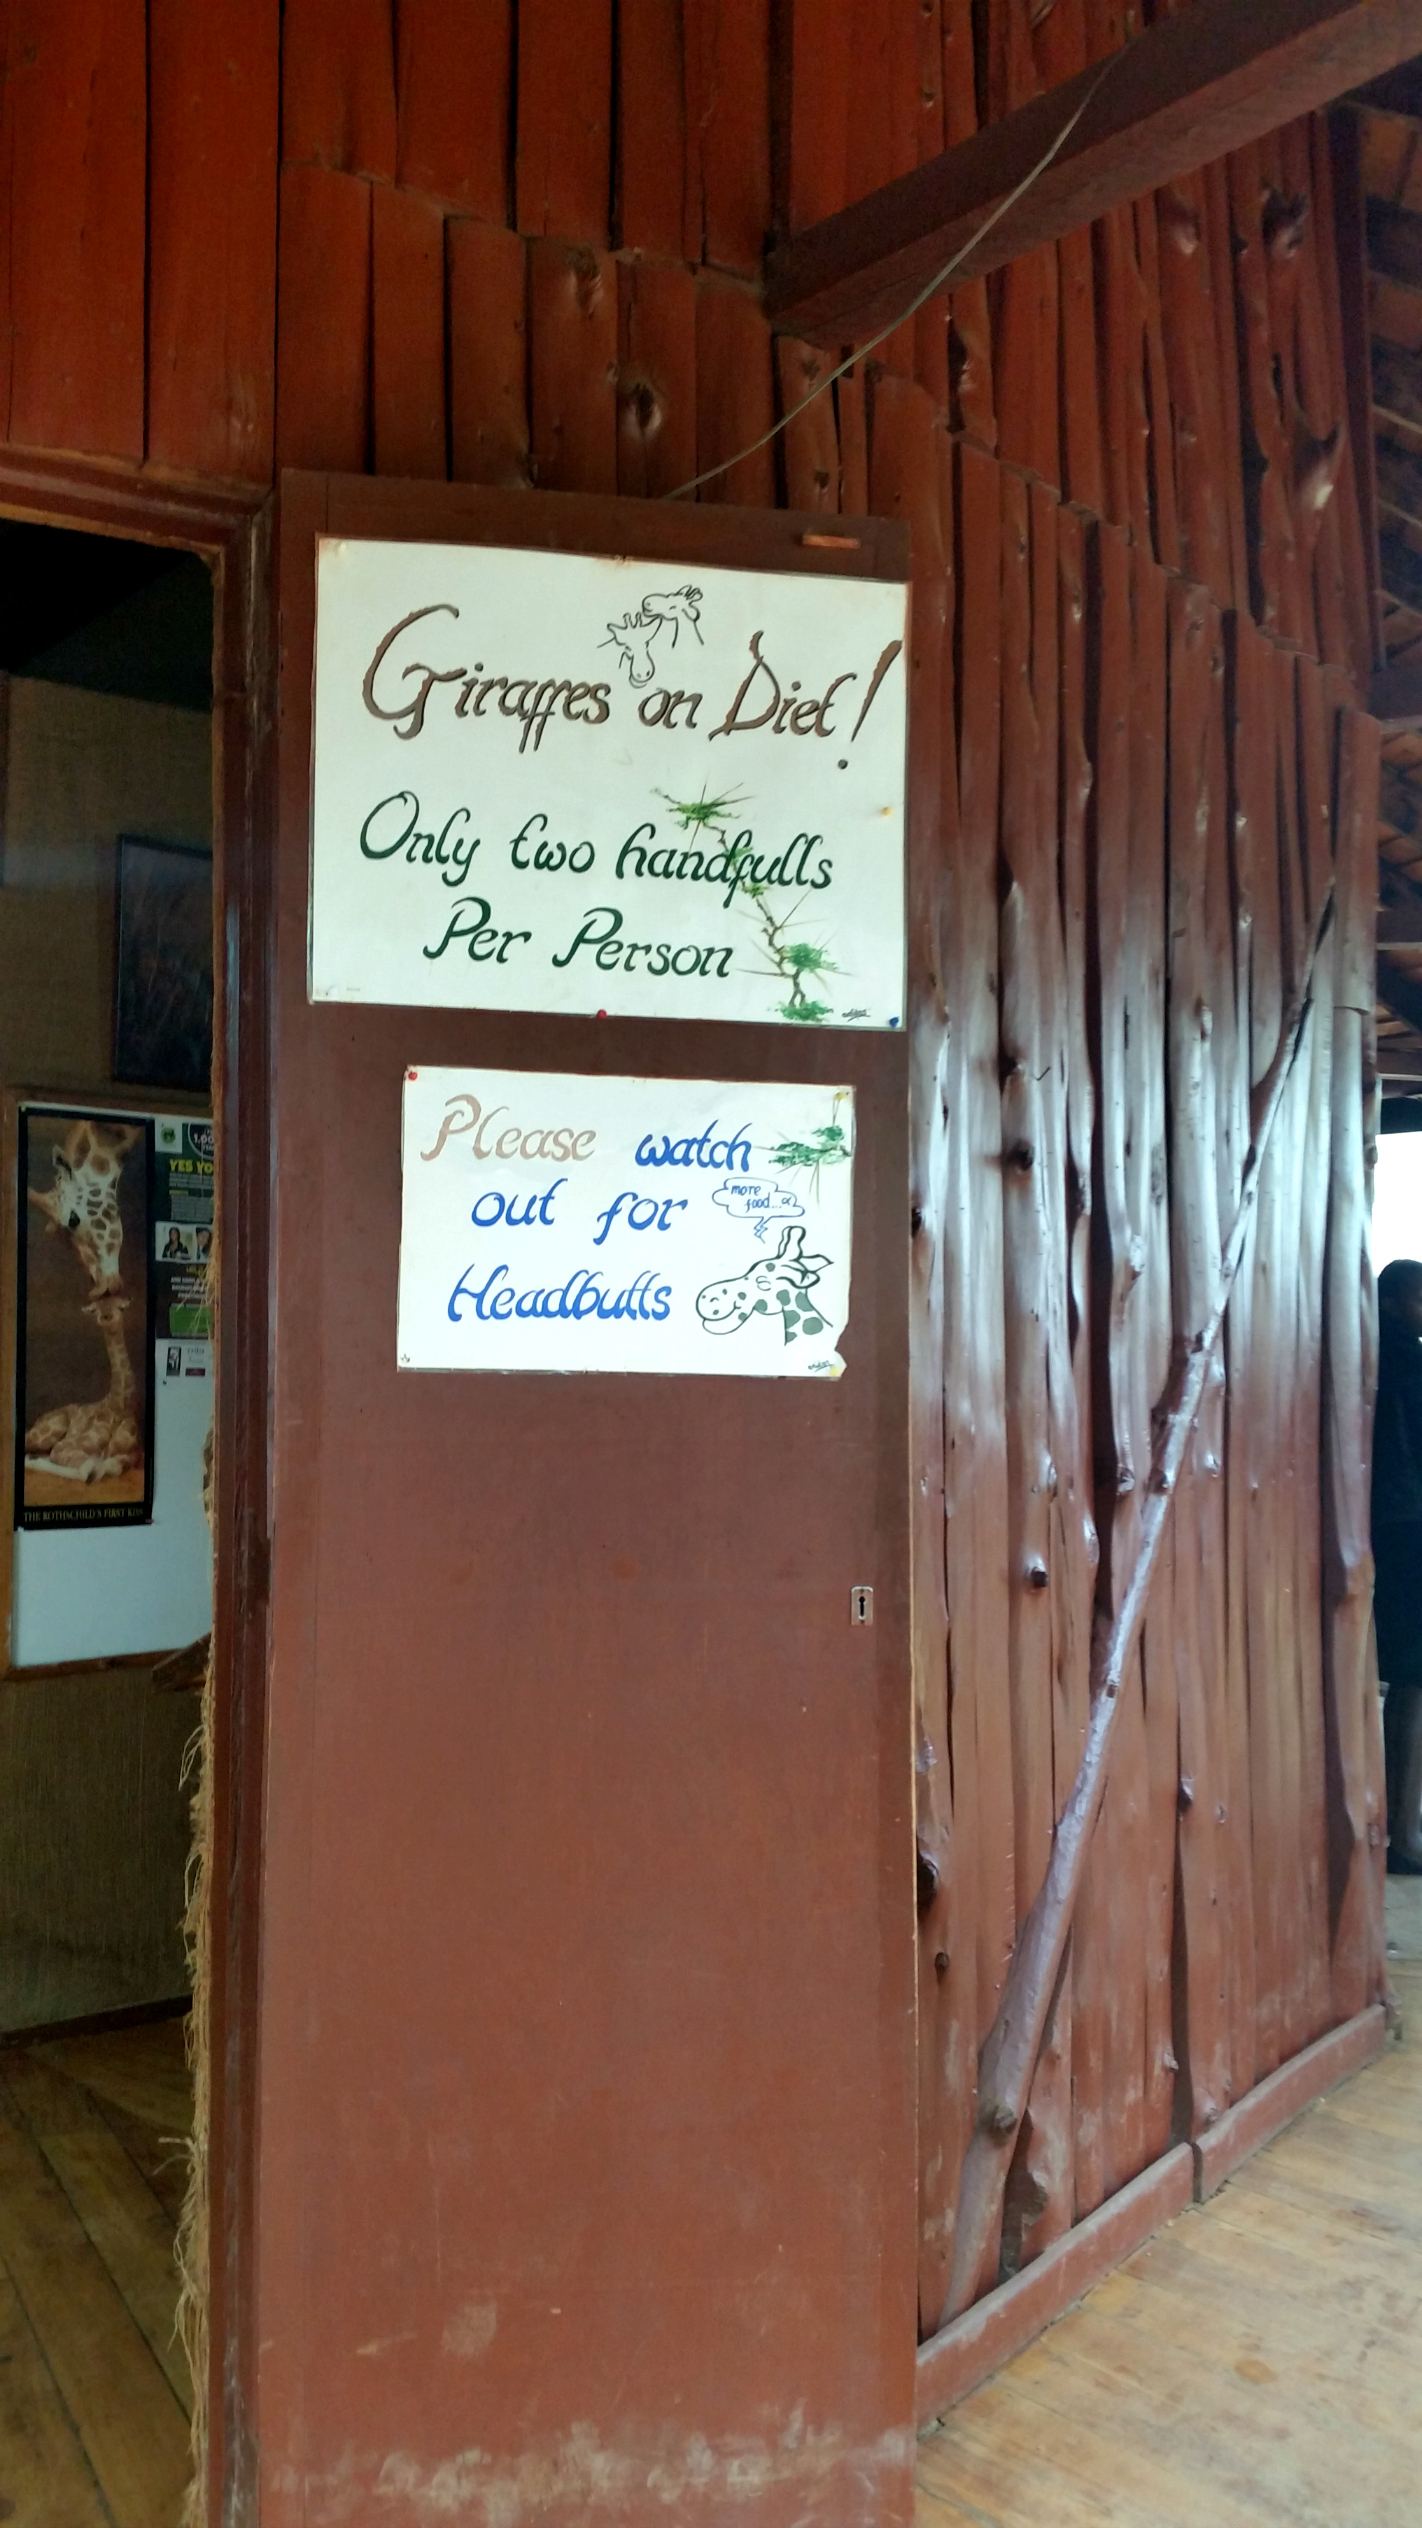 Giraffes on Diet!
Only two handfulls
Per Person
Please watch
out for
more
food...
Headbutts
THE ROTHSCHILD'S FIRST KISS
YES YO